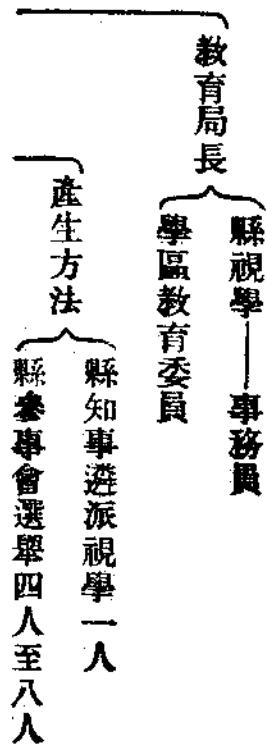 教育局長
縣視學——事務員
學區教育委員
產生方法
縣知事遴派視學一人
縣參事會選舉四人至八人